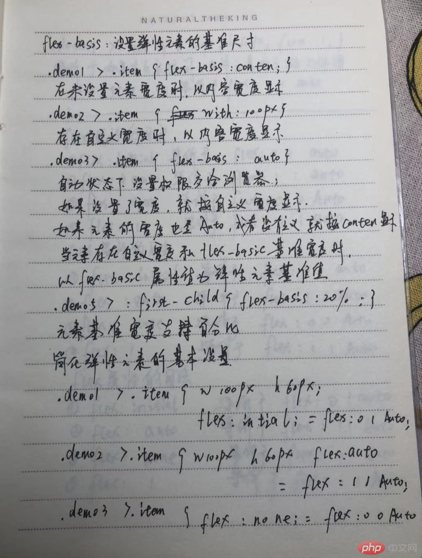 NATURALTHEKING
flex-basis:设置弹性元素的基准尺寸
.demo1 > .item { flex-basis: conten; }
在未设置元素宽度时,以内容宽度显示
.demo2 > .item { with: 100px }
存在自定义宽度时,以内容宽度显示
.demo3 > .item { flex-basis: auto }
自动状态下设置权限交给浏览器;
如果设置了宽度,就按自定义宽度显示.
如果元素的宽度也是Auto,或者没有定义 就按conten显示
当元素存在自定义宽度和flex-basic基准宽度时,
以flex-basic属性值为弹性元素基准值
.demo5 > :first-child { flex-basis: 20%; }
元素基准宽度支持百分比
简化弹性元素的基本设置
.demo1 > .item { w 100px h 60px;
flex: initial; = flex: 0 1 Auto;
.demo2 > .item { w100px h 60px flex: auto
= flex: 1 1 Auto;
.demo3 > .item { flex: none; = flex: 0 0 Auto
php 中文网